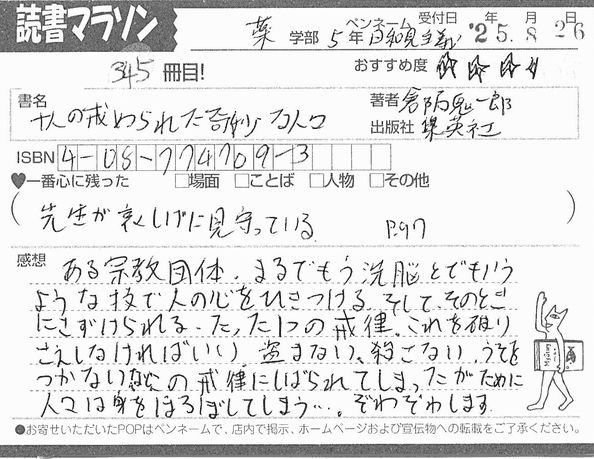 読書マラソン
ペンネーム 受付日 年 月 日
薬 学部 5年 日和見主義 '25. 8 26
345 冊目! おすすめ度 ☆☆☆☆
書名 著者 倉阪鬼一郎
十人の戒められた奇妙な人々
出版社 集英社
ISBN 4-08-774709-3
♥一番心に残った □場面 □ことば □人物 □その他
(先生が哀しげに見守っている P.97)
感想 ある宗教団体、まるでもう洗脳とでもいう
ような技で人の心をひきつける。そして、そのとこ
にさずけられる、たった1つの戒律。これを破り
さえしなければいい。盗まない、殺さない、うそを
つかない などの戒律にしばられてしまったがために
人々は身をほろぼしてしまう…。ぞわぞわします
●お寄せいただいたPOPはペンネームで、店内で掲示、ホームページおよび宣伝物への転載をご了承ください。